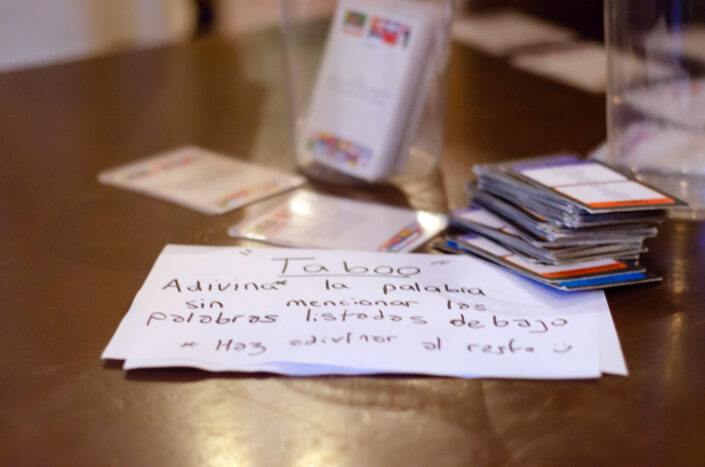 "Taboo"
Adivina* la palabra
sin mencionar las
palabras listadas debajo
* Haz adivinar al resto